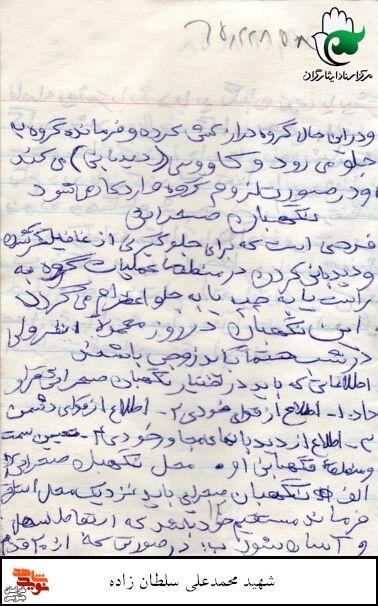 مرکز اسناد ایثارگران
و در این حال گروه دراز کشی کرده و فرمانده گروه به
جلو می رود و کاووس (دیدبانی) می کند
و در صورت لزوم گروه وارد کار می شود
نگهبان صحرایی
فردی است که برای جلوگیری از غافلگیر شده
و دیدبانی کردن در منطقه عملیات گروه به
راست یا به چپ یا به جلو اعزام می گردد
این نگهبان در روز معمولا انفرادی
در شب حتما باید زوجی باشند
اطلاعاتی که باید در اختیار نگهبان صحرایی قرار
داد ۱- اطلاع از قوای خودی ۲- اطلاع از قوای دشمن
۳- اطلاع از دیدبانهای مجاور خودی ۴- تعیین سمت
و منطقه نگهبانی او محل نگهبان صحرایی
الف نگهبان صحرایی باید نزدیک محل استقرار
فرمانده مستقیم خود باشد که ارتباط سهل
و آسان شود ب: در صورتی که از ۲۰ قدم
شهید محمدعلی سلطان زاده